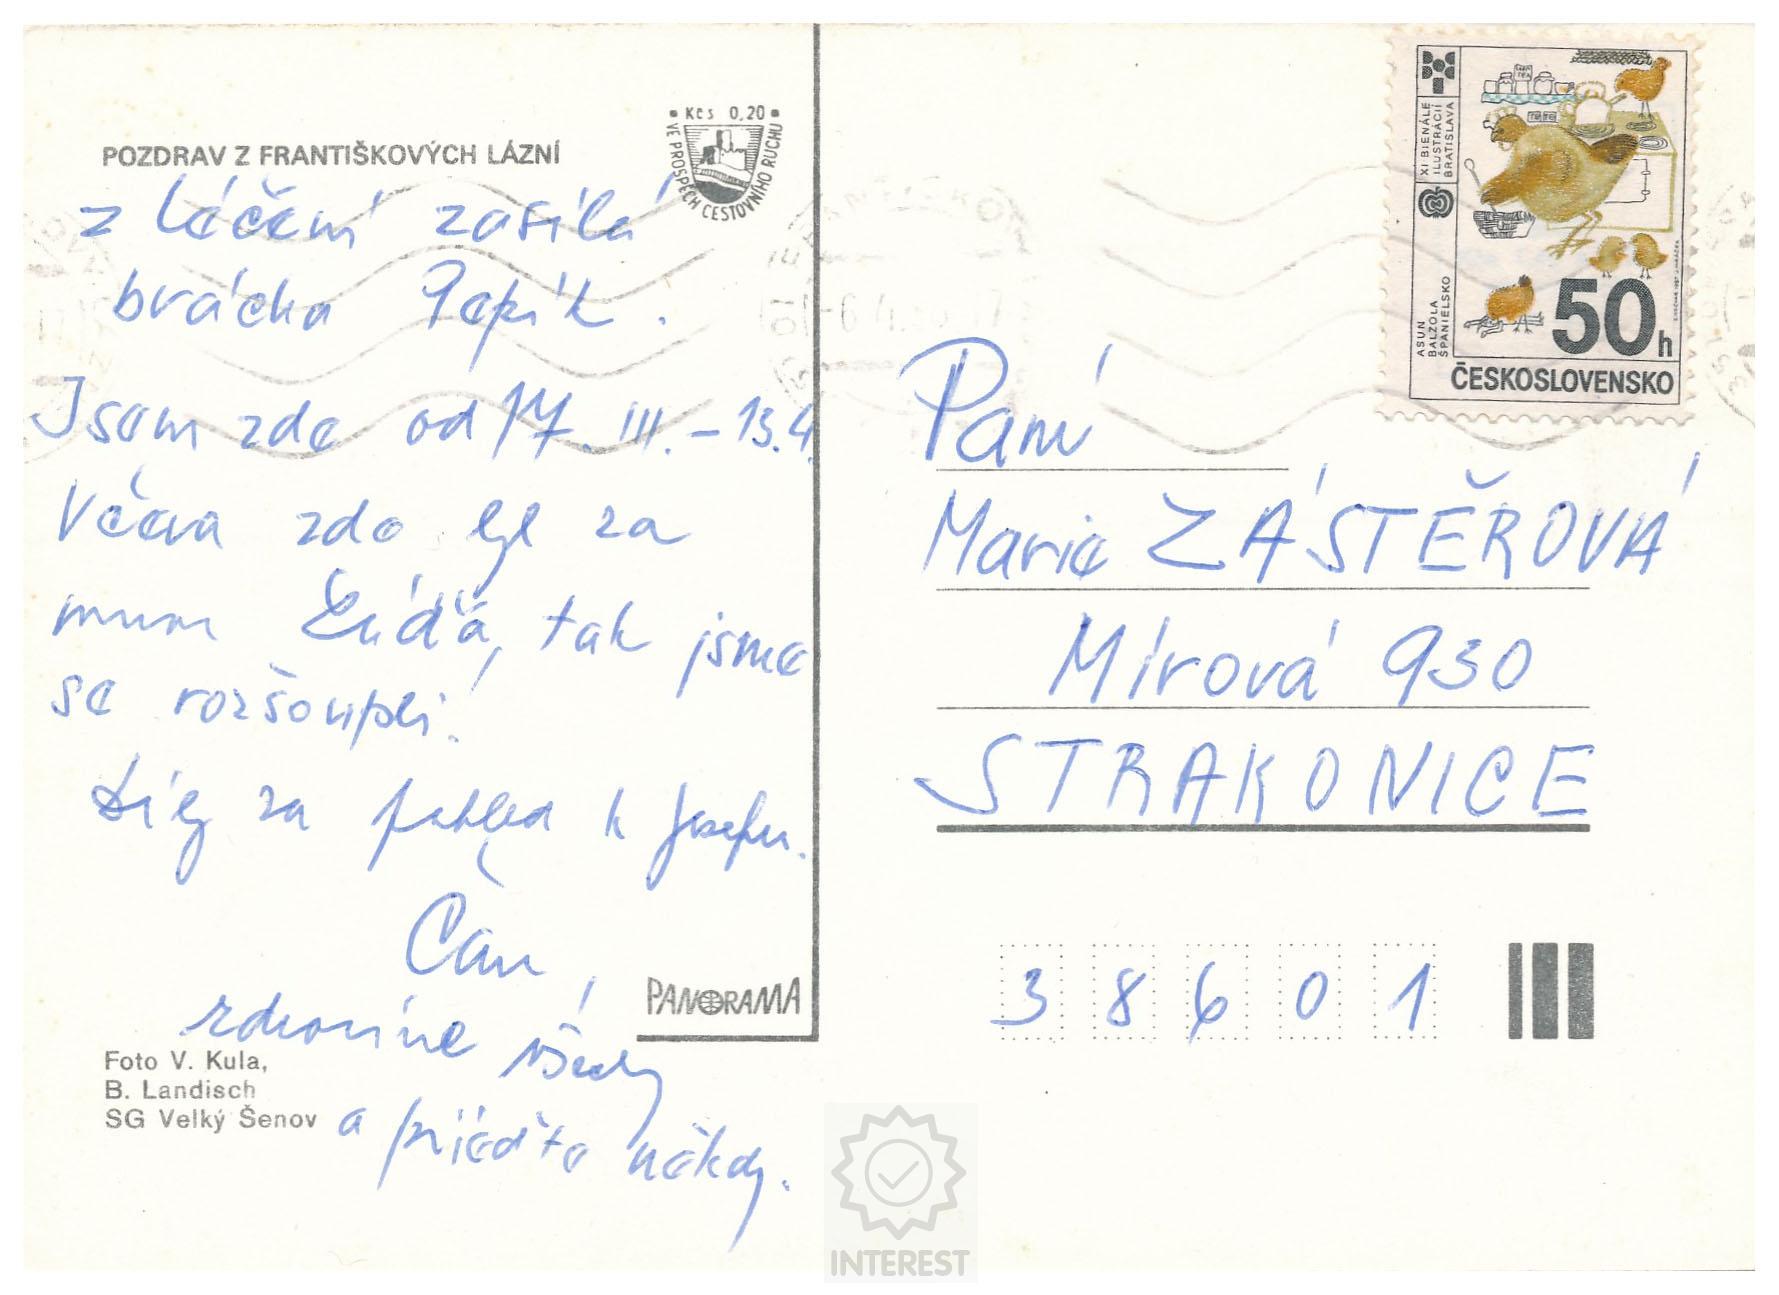 POZDRAV Z FRANTIŠKOVÝCH LÁZNÍ
• Kčs 0,20 •
VE PROSPĚCH CESTOVNÍHO RUCHU
z léčení zasílá
brácha Pepík.
Jsem zde od 17. III. – 13.4.
Včera zde byl za
mnou Luďa, tak jsme
se rozšoupli!
Díky za pohled k Josefu.
Čau,
zdravíme všechny
a přijeďte někdy.
PANORAMA
Foto V. Kula,
B. Landisch
SG Velký Šenov
XI BIENÁLE
ILUSTRÁCIÍ
BRATISLAVA
ASUN
BALZOLA
ŠPANIELSKO
50h
ČESKOSLOVENSKO
Paní
Marie ZÁSTĚROVÁ
Mírová 930
STRAKONICE
38601
INTEREST